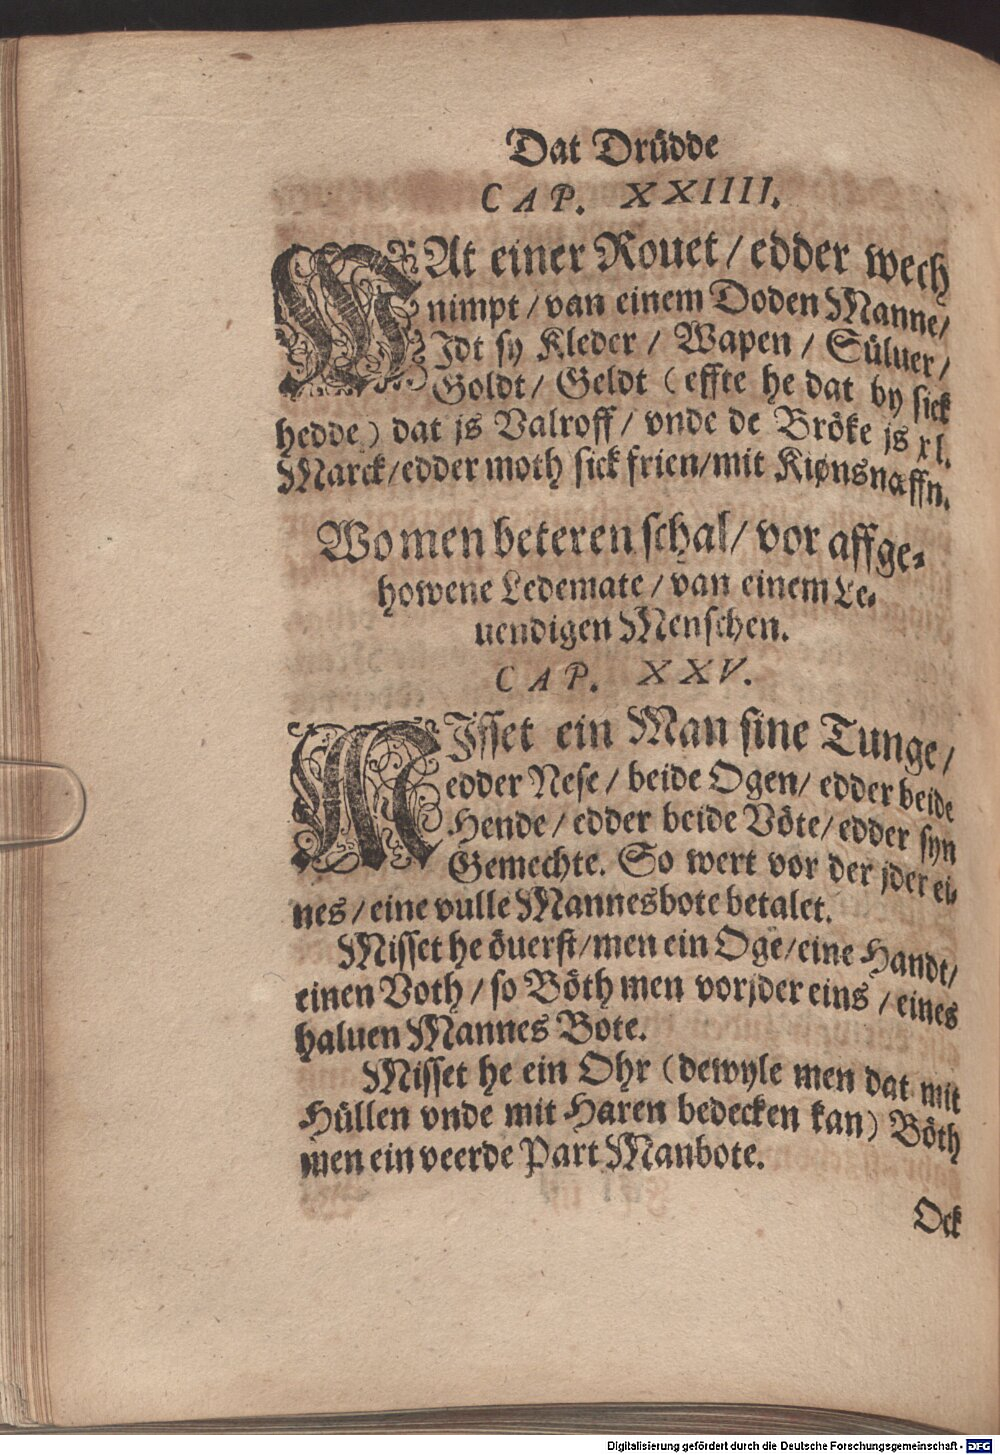 Dat Drüdde
CAP. XXIIII.
WAt einer Rouet / edder wech
nimpt / van einem Doden Manne /
Jdt sy Kleder / Wapen / Süluer /
Goldt / Geldt ( effte he dat by sick
hedde ) dat js Valroff / vnde de Bröke js xl.
Marck / edder moth sick frien / mit Kiønsnæffn.
Wo men beteren schal / vor affge-
howene Ledemate / van einem Le-
uendigen Menschen.
CAP. XXV.
MJsset ein Man sine Tunge /
edder Nese / beide Ogen / edder beide
Hende / edder beide Vöte / edder syn
Gemechte. So wert vor der jder ei-
nes / eine vulle Mannesbote betalet.
Misset he öuerst / men ein Oge / eine Handt /
einen Voth / so Böth men vor jder eins / eines
haluen Mannes Bote.
Misset he ein Ohr ( dewyle men dat mit
Hüllen vnde mit Haren bedecken kan ) Böth
men ein veerde Part Manbote.
Ock
Digitalisierung gefördert durch die Deutsche Forschungsgemeinschaft - DFG